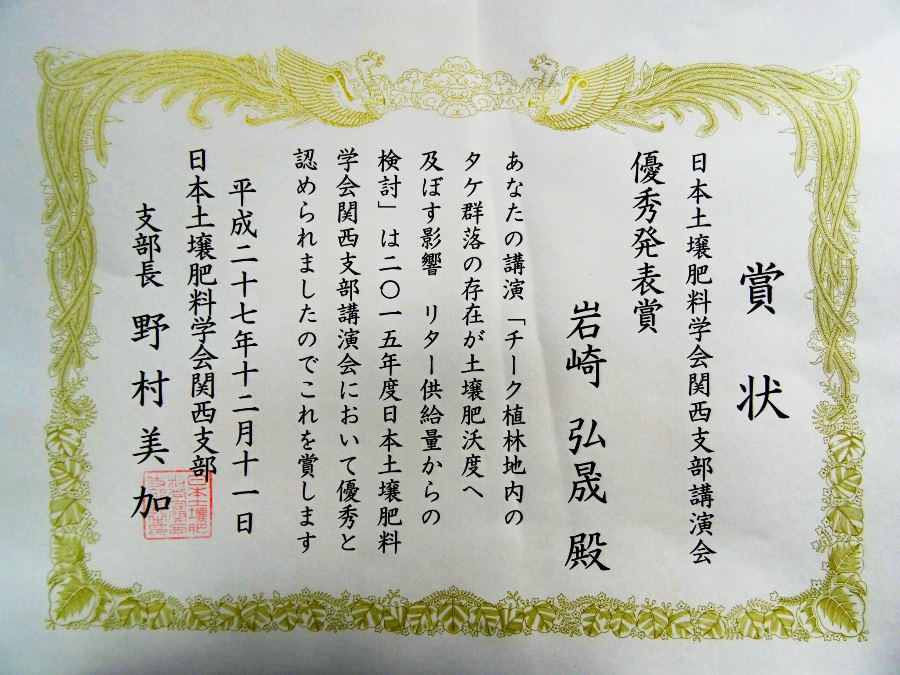 賞状
日本土壌肥料学会関西支部講演会
優秀発表賞
岩崎 弘晟 殿
あなたの講演「チーク植林地内の
タケ群落の存在が土壌肥沃度へ
及ぼす影響 リター供給量からの
検討」は二〇一五年度日本土壌肥料
学会関西支部講演会において優秀と
認められましたのでこれを賞します
平成二十七年十二月十一日
日本土壌肥料学会関西支部
支部長 野村美加